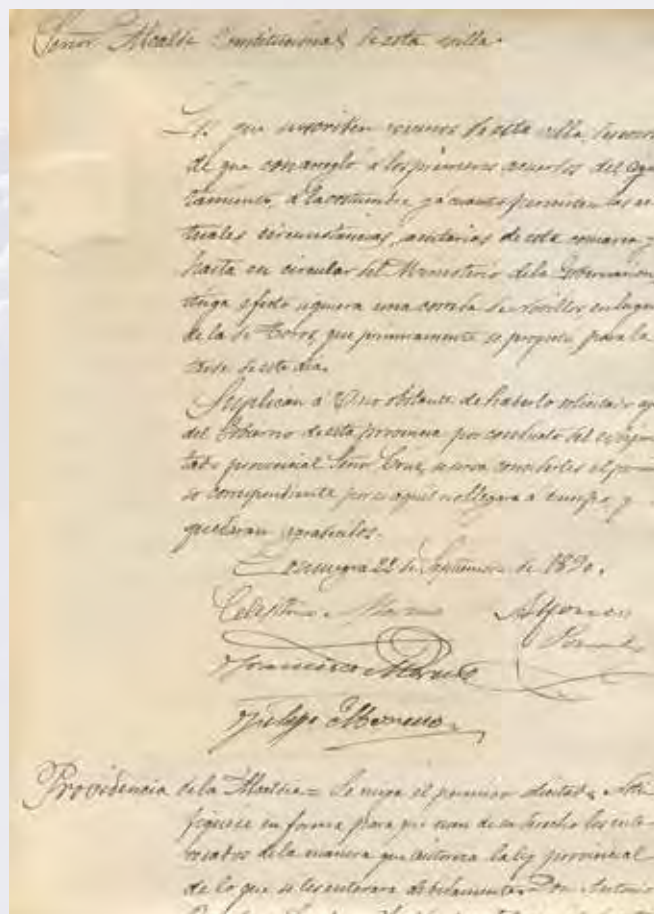 Señor Alcalde Constitucional de esta villa.
Los que suscriben vecinos de esta villa, deseosos
de que con arreglo á los primeros acuerdos del Ayun
tamiento, á la costumbre y á cuanto permiten las ac
tuales circunstancias sanitarias de esta comarca y
hasta en circular del Ministerio de la Gobernación,
tenga efecto siquiera una corrida de novillos en lugar
de la de Toros, que primeramente se propuso, para la
tarde de este día.
Suplican á V. no obstante de haberlo solicitado
del Gobierno de esta provincia por conducto del
tado provincial Señor Cruz, se sirva concederles el permi
so correspondiente por si aquel no llegara a tiempo, y
quedaran agradecidos.
Consuegra 22 de Septiembre de 1890.
Celestino Alfonso
Francisco Moreno
Felipe Moreno
Providencia de la Alcaldía = Se niega el permiso
fiquese en forma para que usen de su derecho los inte
resados de la manera que autoriza la ley provincial
de lo que se les enterara debidamente. Don Antonio